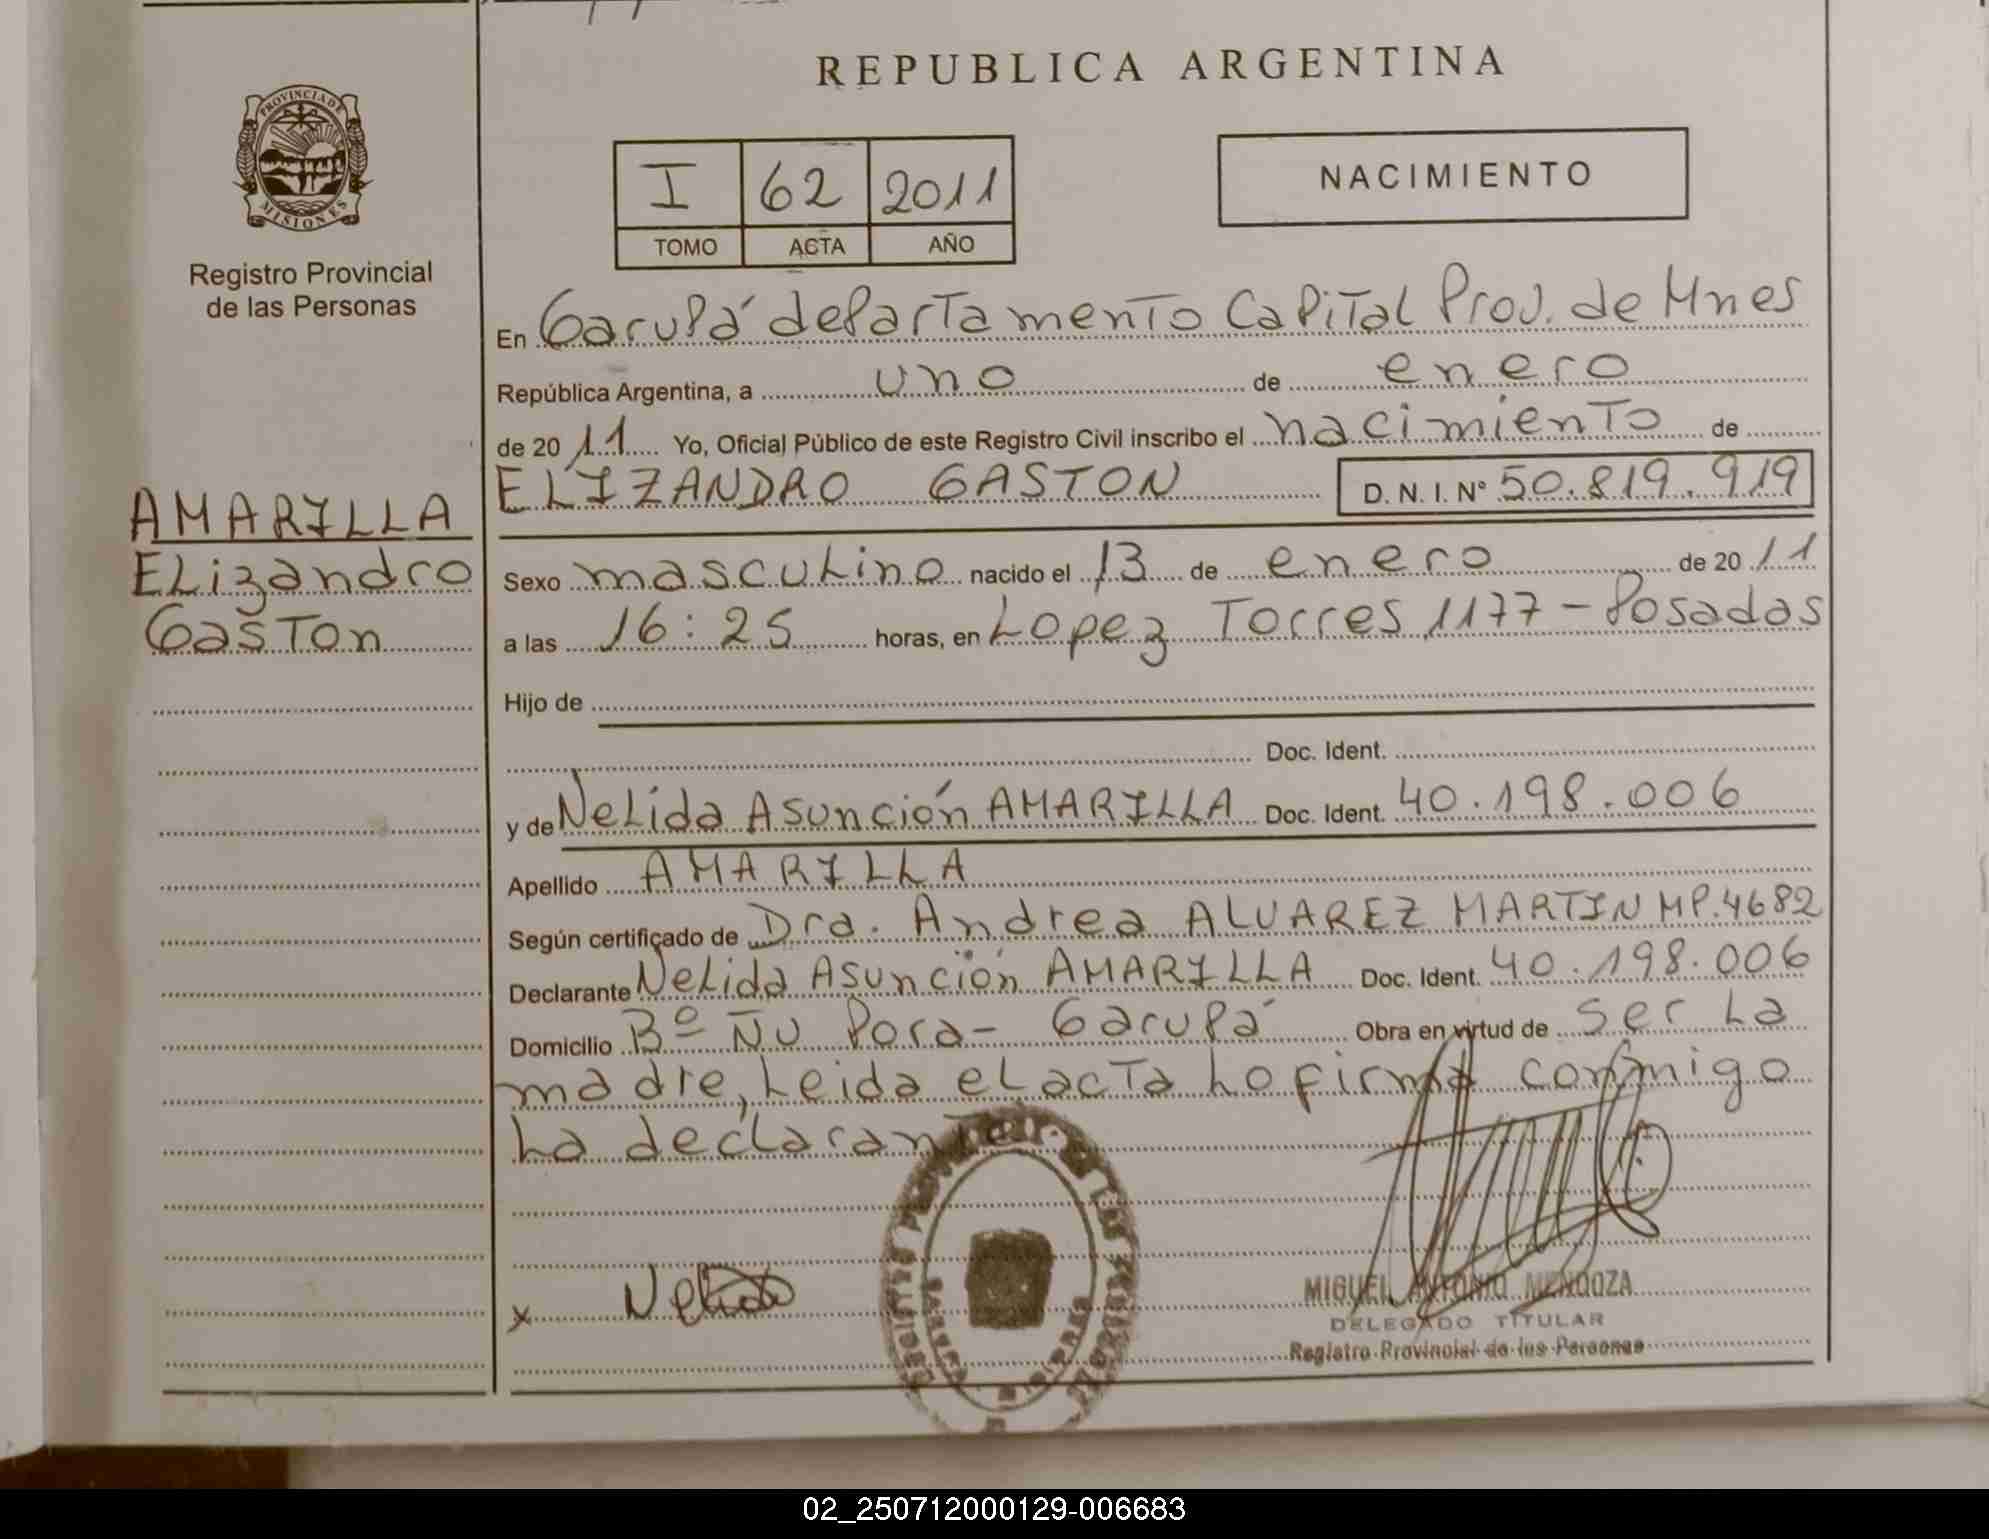 REPUBLICA ARGENTINA
PROVINCIA DE
MISIONES
Registro Provincial
de las Personas
I 62 2011
TOMO ACTA AÑO
NACIMIENTO
En Garupá departamento Capital Prov. de Mnes
República Argentina, a uno de enero
de 2011 Yo, Oficial Público de este Registro Civil inscribo el nacimiento de
ELIZANDRO GASTON D.N.I. Nº 50.819.919
AMARILLA
Elizandro
Gaston
Sexo masculino nacido el 13 de enero de 2011
a las 16:25 horas, en Lopez Torres 1177 - Posadas
Hijo de
Doc. Ident.
y de Nelida Asunción AMARILLA Doc. Ident. 40.198.006
Apellido AMARILLA
Según certificado de Dra. Andrea ALVAREZ MARTIN MP.4682
Declarante Nelida Asunción AMARILLA Doc. Ident. 40.198.006
Domicilio Bº Ñu Pora - Garupá Obra en virtud de ser la
madre, Leida el acta lo firma conmigo
la declarante
x Nelida
MIGUEL ANTONIO MENDOZA
DELEGADO TITULAR
Registro Provincial de las Personas
02_250712000129-006683